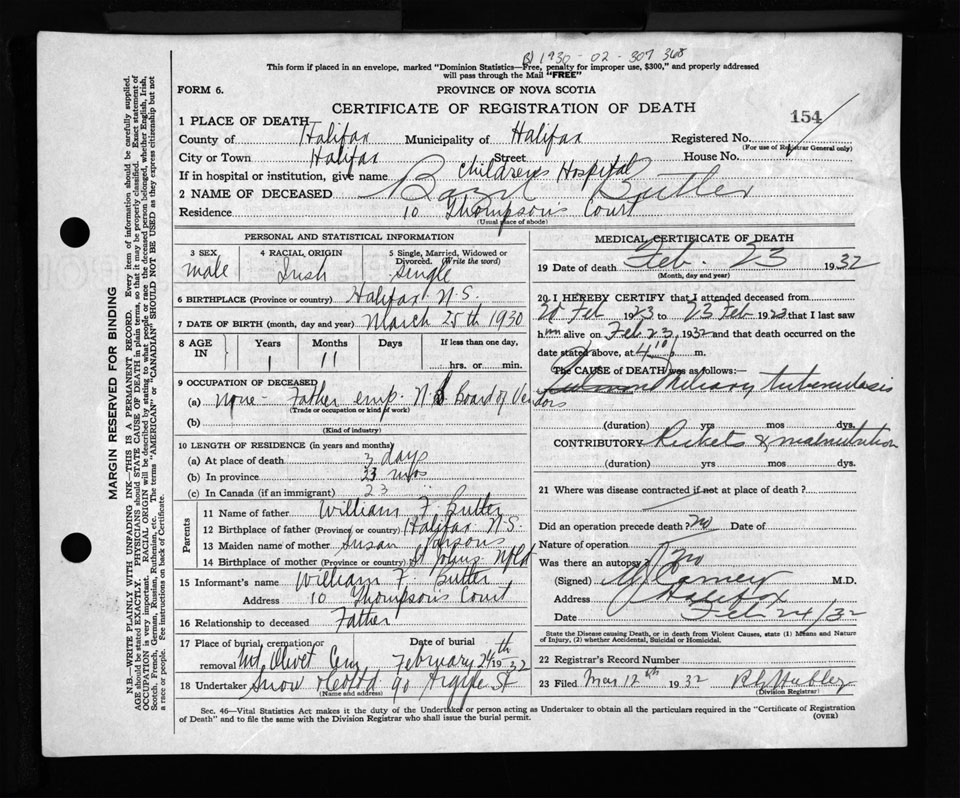 1930 - 02 - 307 368
This form if placed in an envelope, marked "Dominion Statistics—Free, penalty for improper use, $300," and properly addressed
will pass through the Mail "FREE"
FORM 6.
PROVINCE OF NOVA SCOTIA
CERTIFICATE OF REGISTRATION OF DEATH
154
1 PLACE OF DEATH
County of Halifax Municipality of Halifax Registered No.
(For use of Registrar General only)
City or Town Halifax Street House No.
If in hospital or institution, give name Childrens Hospital
2 NAME OF DECEASED Bazil Butler
Residence 10 Thompson's Court
(Usual place of abode)
PERSONAL AND STATISTICAL INFORMATION
3 SEX 4 RACIAL ORIGIN 5 Single, Married, Widowed or Divorced. (Write the word)
male Irish Single
6 BIRTHPLACE (Province or country) Halifax N.S.
7 DATE OF BIRTH (month, day and year) March 25th 1930
8 AGE IN Years Months Days If less than one day,
1 11 hrs. or min.
9 OCCUPATION OF DECEASED
(a) None - Father emp. N.S Board of Vendors
(Trade or occupation or kind of work)
(b)
(Kind of industry)
10 LENGTH OF RESIDENCE (in years and months)
(a) At place of death 3 days
(b) In province 23 mos
(c) In Canada (if an immigrant) 23
Parents
11 Name of father William F. Butler
12 Birthplace of father (Province or country) Halifax N.S.
13 Maiden name of mother Susan Parsons
14 Birthplace of mother (Province or country) St Johns Nfld
15 Informant's name William F. Butler
Address 10 Thompson's Court
16 Relationship to deceased Father
17 Place of burial, cremation or removal Mt. Olivet Cem Date of burial February 24th 1932
18 Undertaker Snow & Co Ltd 90 Argyle St
(Name and address)
MEDICAL CERTIFICATE OF DEATH
19 Date of death Feb. 23 1932
(Month, day and year)
20 I HEREBY CERTIFY that I attended deceased from
20 Feb 1923 to 23 Feb 1923 that I last saw
him alive on Feb 23, 1932 and that death occurred on the
date stated above, at 4 10 p.m.
The CAUSE of DEATH was as follows:
Miliary tuberculosis
(duration) yrs mos dys.
CONTRIBUTORY Rickets & malnutrition
(duration) yrs mos dys.
21 Where was disease contracted if not at place of death?
Did an operation precede death? No Date of
Nature of operation
Was there an autopsy? No
(Signed) M.D.
Address Halifax
Date Feb 24/32
State the Disease causing Death, or in death from Violent Causes, state (1) Means and Nature
of Injury, (2) whether Accidental, Suicidal or Homicidal.
22 Registrar's Record Number
23 Filed Mar 12th 1932
(Division Registrar)
Sec. 46—Vital Statistics Act makes it the duty of the Undertaker or person acting as Undertaker to obtain all the particulars required in the "Certificate of Registration
of Death" and to file the same with the Division Registrar who shall issue the burial permit.
(OVER)
MARGIN RESERVED FOR BINDING
N.B.—WRITE PLAINLY WITH UNFADING INK—THIS IS A PERMANENT RECORD. Every item of information should be carefully supplied.
AGE should be stated EXACTLY. PHYSICIANS should STATE CAUSE OF DEATH in plain terms, so that it may be properly classified. Exact statement of
OCCUPATION is very important. RACIAL ORIGIN will be described by stating to what people or race the deceased person belonged, whether English, Irish,
Scotch, French, German, Russian, Ruthenian, etc. The terms "AMERICAN" or "CANADIAN" SHOULD NOT BE USED as they express citizenship but not
a race or people. See instructions on back of Certificate.